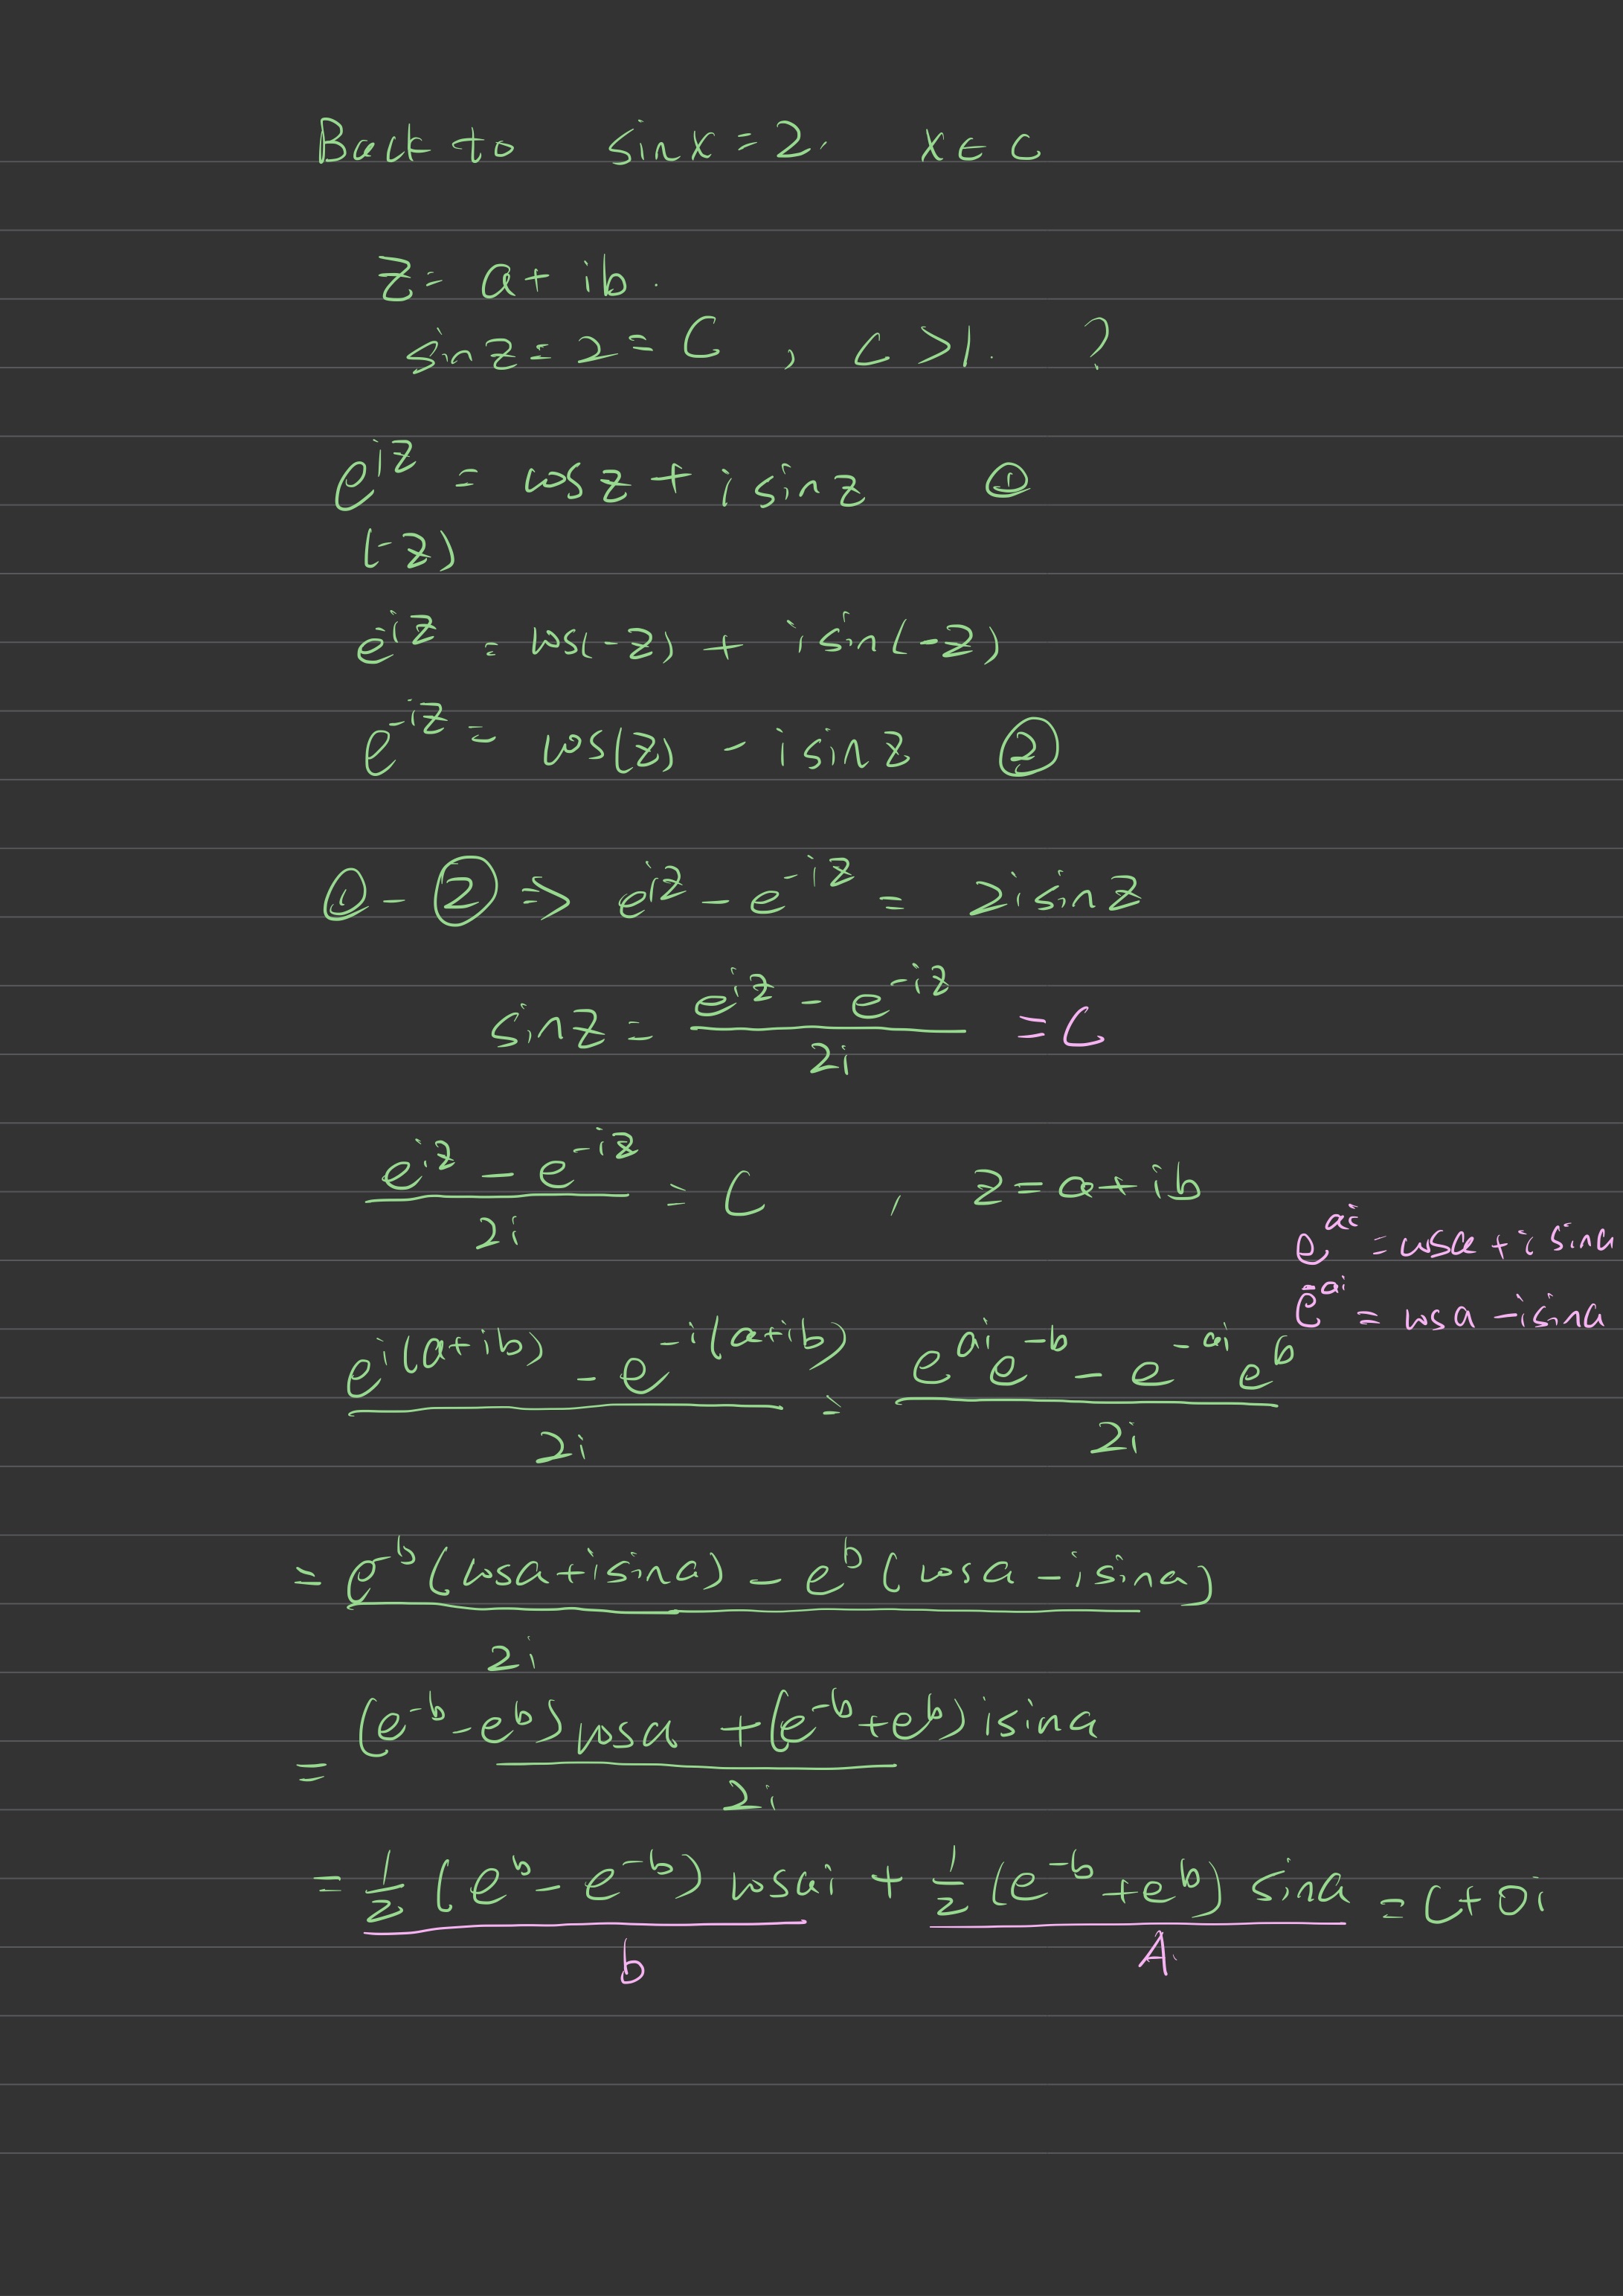 Back to sinx = 2. x ∈ C
z = a + ib.
sinz = 2 = C , C > 1. ?
e^{iz} = cosz + isinz ①
(-z)
e^{-iz} = cos(-z) + isin(-z)
e^{-iz} = cos(z) - isinz ②
① - ② => e^{iz} - e^{-iz} = 2isinz
sinz = (e^{iz} - e^{-iz})/2i = C
(e^{iz} - e^{-iz})/2i = C , z = a + ib
e^{ai} = cosa + i sina
e^{-ai} = cosa - isina
(e^{i(a+ib)} - e^{-i(a+ib)})/2i = (e^{ai}e^{-b} - e^{-ai}e^{b})/2i
= (e^{-b}(cosa + isina) - e^{b}(cosa - isina))/2i
= ((e^{-b} - e^{b})cosa + (e^{-b} + e^{b})isina)/2i
= 1/2 (e^{b} - e^{-b}) cosai + 1/2 (e^{-b} + e^{b}) sina = C + 0i
b A.